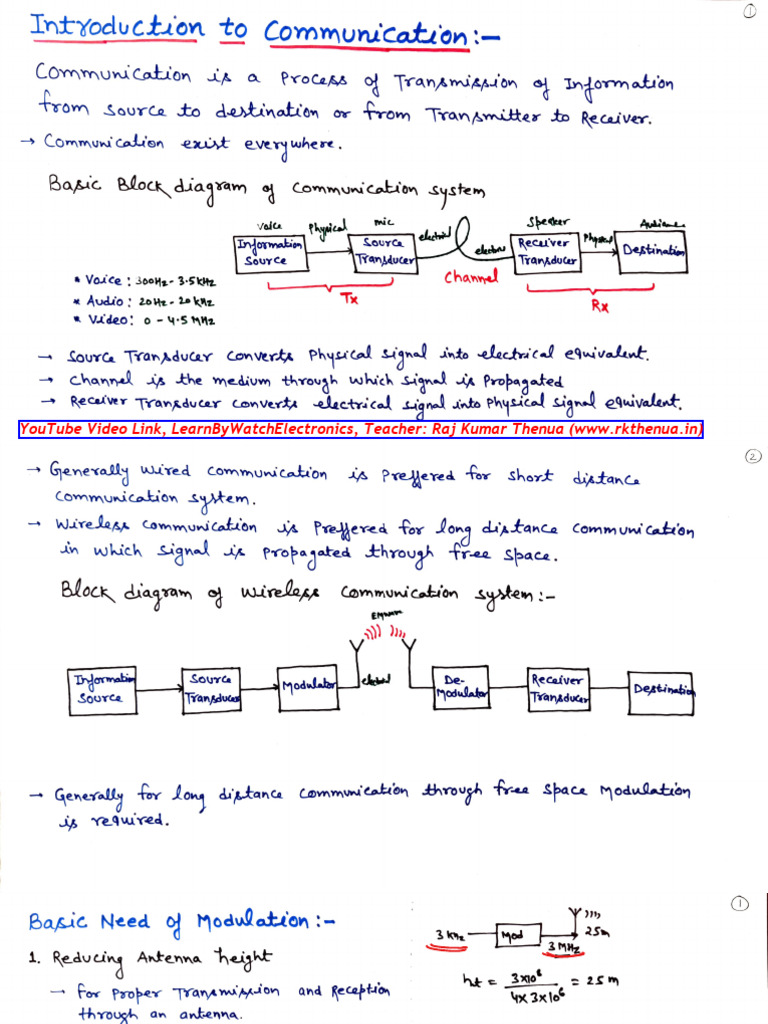 1
Introduction to Communication:-
Communication is a process of Transmission of Information
from source to destination or from Transmitter to Receiver.
→ Communication exist everywhere.
Basic Block diagram of communication system
Voice
Physical
mic
electrical
electrical
Speaker
Physical
Audience
Information Source
Source Transducer
Channel
Receiver Transducer
Destination
Tx
Rx
* Voice: 300Hz - 3.5kHz
* Audio: 20Hz - 20kHz
* Video: 0 - 4.5MHz
→ Source Transducer converts Physical signal into electrical equivalent.
→ Channel is the medium through which signal is Propagated
→ Receiver Transducer converts electrical signal into Physical signal equivalent.
YouTube Video Link, LearnByWatchElectronics, Teacher: Raj Kumar Thenua (www.rkthenua.in)
2
→ Generally wired communication is preffered for short distance
communication system.
→ Wireless communication is preffered for long distance communication
in which signal is propagated through free space.
Block diagram of wireless communication system:-
EMwave
Information Source
Source Transducer
Modulator
electrical
De-Modulator
Receiver Transducer
Destination
→ Generally for long distance communication through free space Modulation
is required.
1
Basic Need of Modulation:-
1. Reducing Antenna height
→ for proper Transmission and Reception
through an antenna.
3 kHz
Mod
3 MHz
25m
ht = 3×10⁸ / 4×3×10⁶ = 25m